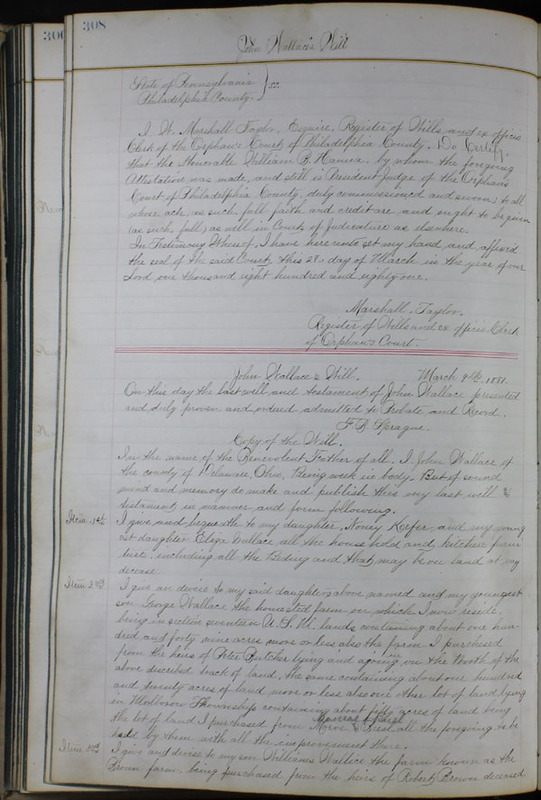 300
308
John Wallace's Will
State of Pennsylvania } ss.
Philadelphia County.
I. W. Marshall Taylor, Esquire, Register of Wills and ex officio
Clerk of the Orphans Court of Philadelphia County. Do Certify.
that the Honorable William B. Hanna. by whom the foregoing
Attestation was made, and still is President Judge of the Orphans
Court of Philadelphia County, duly commissioned and sworn; to all
whose acts, as such, full faith and credit are, and ought to be given
(as such full) as well in Courts of Judicature as elsewhere.
In Testimony Whereof, I have here unto set my hand, and affixed
the seal of the said Court, this 28. day of March in the year of our
Lord one thousand eight hundred and eighty one.
Marshall. Taylor.
Register of Wills and ex officio Clerk
of Orphan's Court.
John Wallace's Will. March 9th. 1881.
On this day the last will and testament of John Wallace presented
and duly proven and ordered admitted to Probate and Record.
F. B. Sprague.
Copy of the Will.
In the name of the Benevolent Father of all. I, John Wallace of
the county of Delaware, Ohio, Being weak in body. But of sound
mind and memory do make and publish this my last will &
testament, in manner and form following.
Item. 1st. I give and bequeath to my daughter, Nancy Keefer and my young
est daughter Eliza Wallace all the house hold and kitchen furni
ture, including all the Beding and that may be on hand at my
decease.
Item 2nd. I give an devise to my said daughters above named and my youngest
son George Wallace the homested farm on which I now reside,
being in section seventeen U. S. M. lands containing about one hun-
dred and forty nine acres more or less also the farm I purchased
from the heirs of Peter Butcher lying and on the North of the
above described track of land, the same containing about one hundred
and twenty acres of land more or less also one other lot of land lying
in Township containing about fifty acres of land being
the lot of land I purchased from all the forgoing to be
held by them with all the improvements there.
Item 3rd. I give and devise to my son Williams Wallace the farm known as the
Brown farm. being purchased from the heirs of Robert Brown deceased